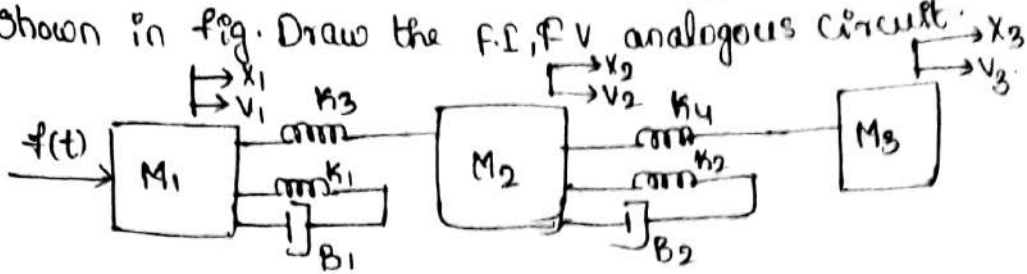 shown in fig. Draw the F.I, F V analogous circuit.
X1
V1
K3
X2
V2
K4
X3
V3.
f(t)
M1
K1
B1
M2
K2
B2
M3